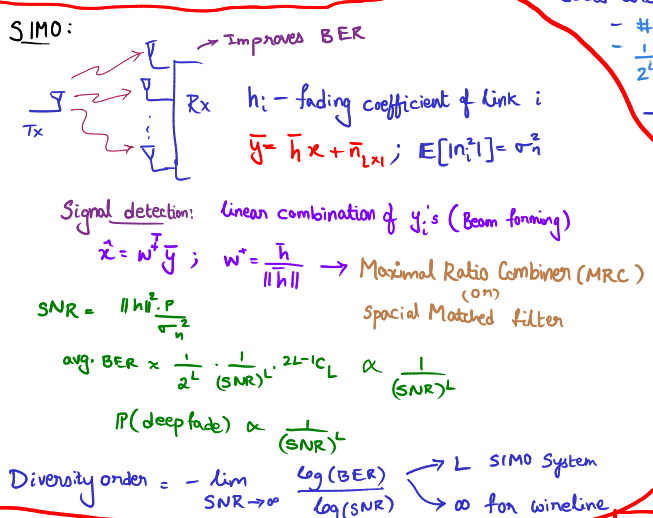 SIMO:
→ Improves BER
- #
- 1/2^L
Tx
Rx
h_i - fading coefficient of link i
ȳ = h̄ x + n̄_{L×1} ; E[|n_i²|] = σ_n²
Signal detection: linear combination of y_i's (Beam forming)
x̂ = w^T ȳ ; w* = h̄/||h̄|| → Maximal Ratio Combiner (MRC)
(or)
Spacial Matched filter
SNR = ||h||².P/σ_n²
avg. BER ≈ 1/2^L . 1/(SNR)^L . ^{2L-1}C_L ∝ 1/(SNR)^L
P(deep fade) ∝ 1/(SNR)^L
Diversity order = - lim SNR→∞ log(BER)/log(SNR) → L SIMO System
→ ∞ for wireline